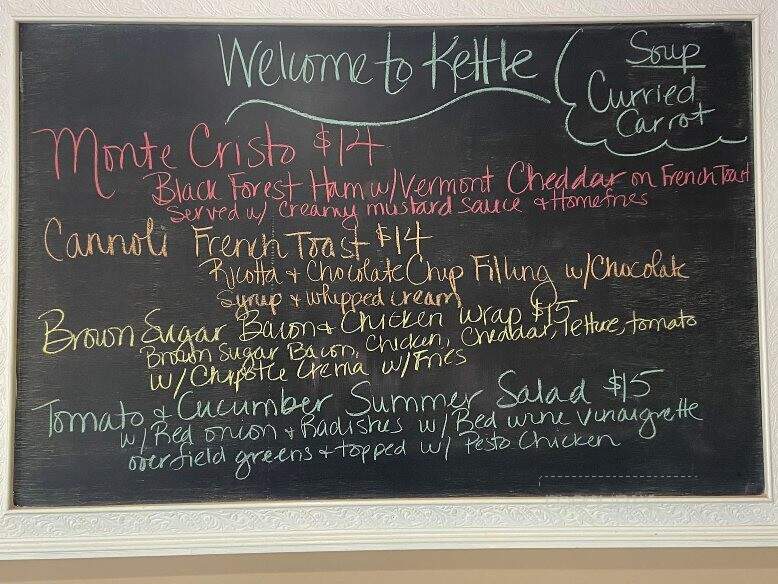 Welcome to Kettle
Soup
Curried
Carrot
Monte Cristo $14
Black Forest Ham w/Vermont Cheddar on French Toast
Served w/ creamy mustard sauce + Homefries
Cannoli French Toast $14
Ricotta + Chocolate Chip Filling w/Chocolate
Syrup + whipped cream
Brown Sugar Bacon + Chicken Wrap $15
Brown Sugar Bacon, Chicken, Cheddar, lettuce, tomato
w/Chipotle Crema w/Fries
Tomato & Cucumber Summer Salad $15
w/ Red onion + Radishes w/ Red wine vinaigrette
over field greens + topped w/ Pesto Chicken